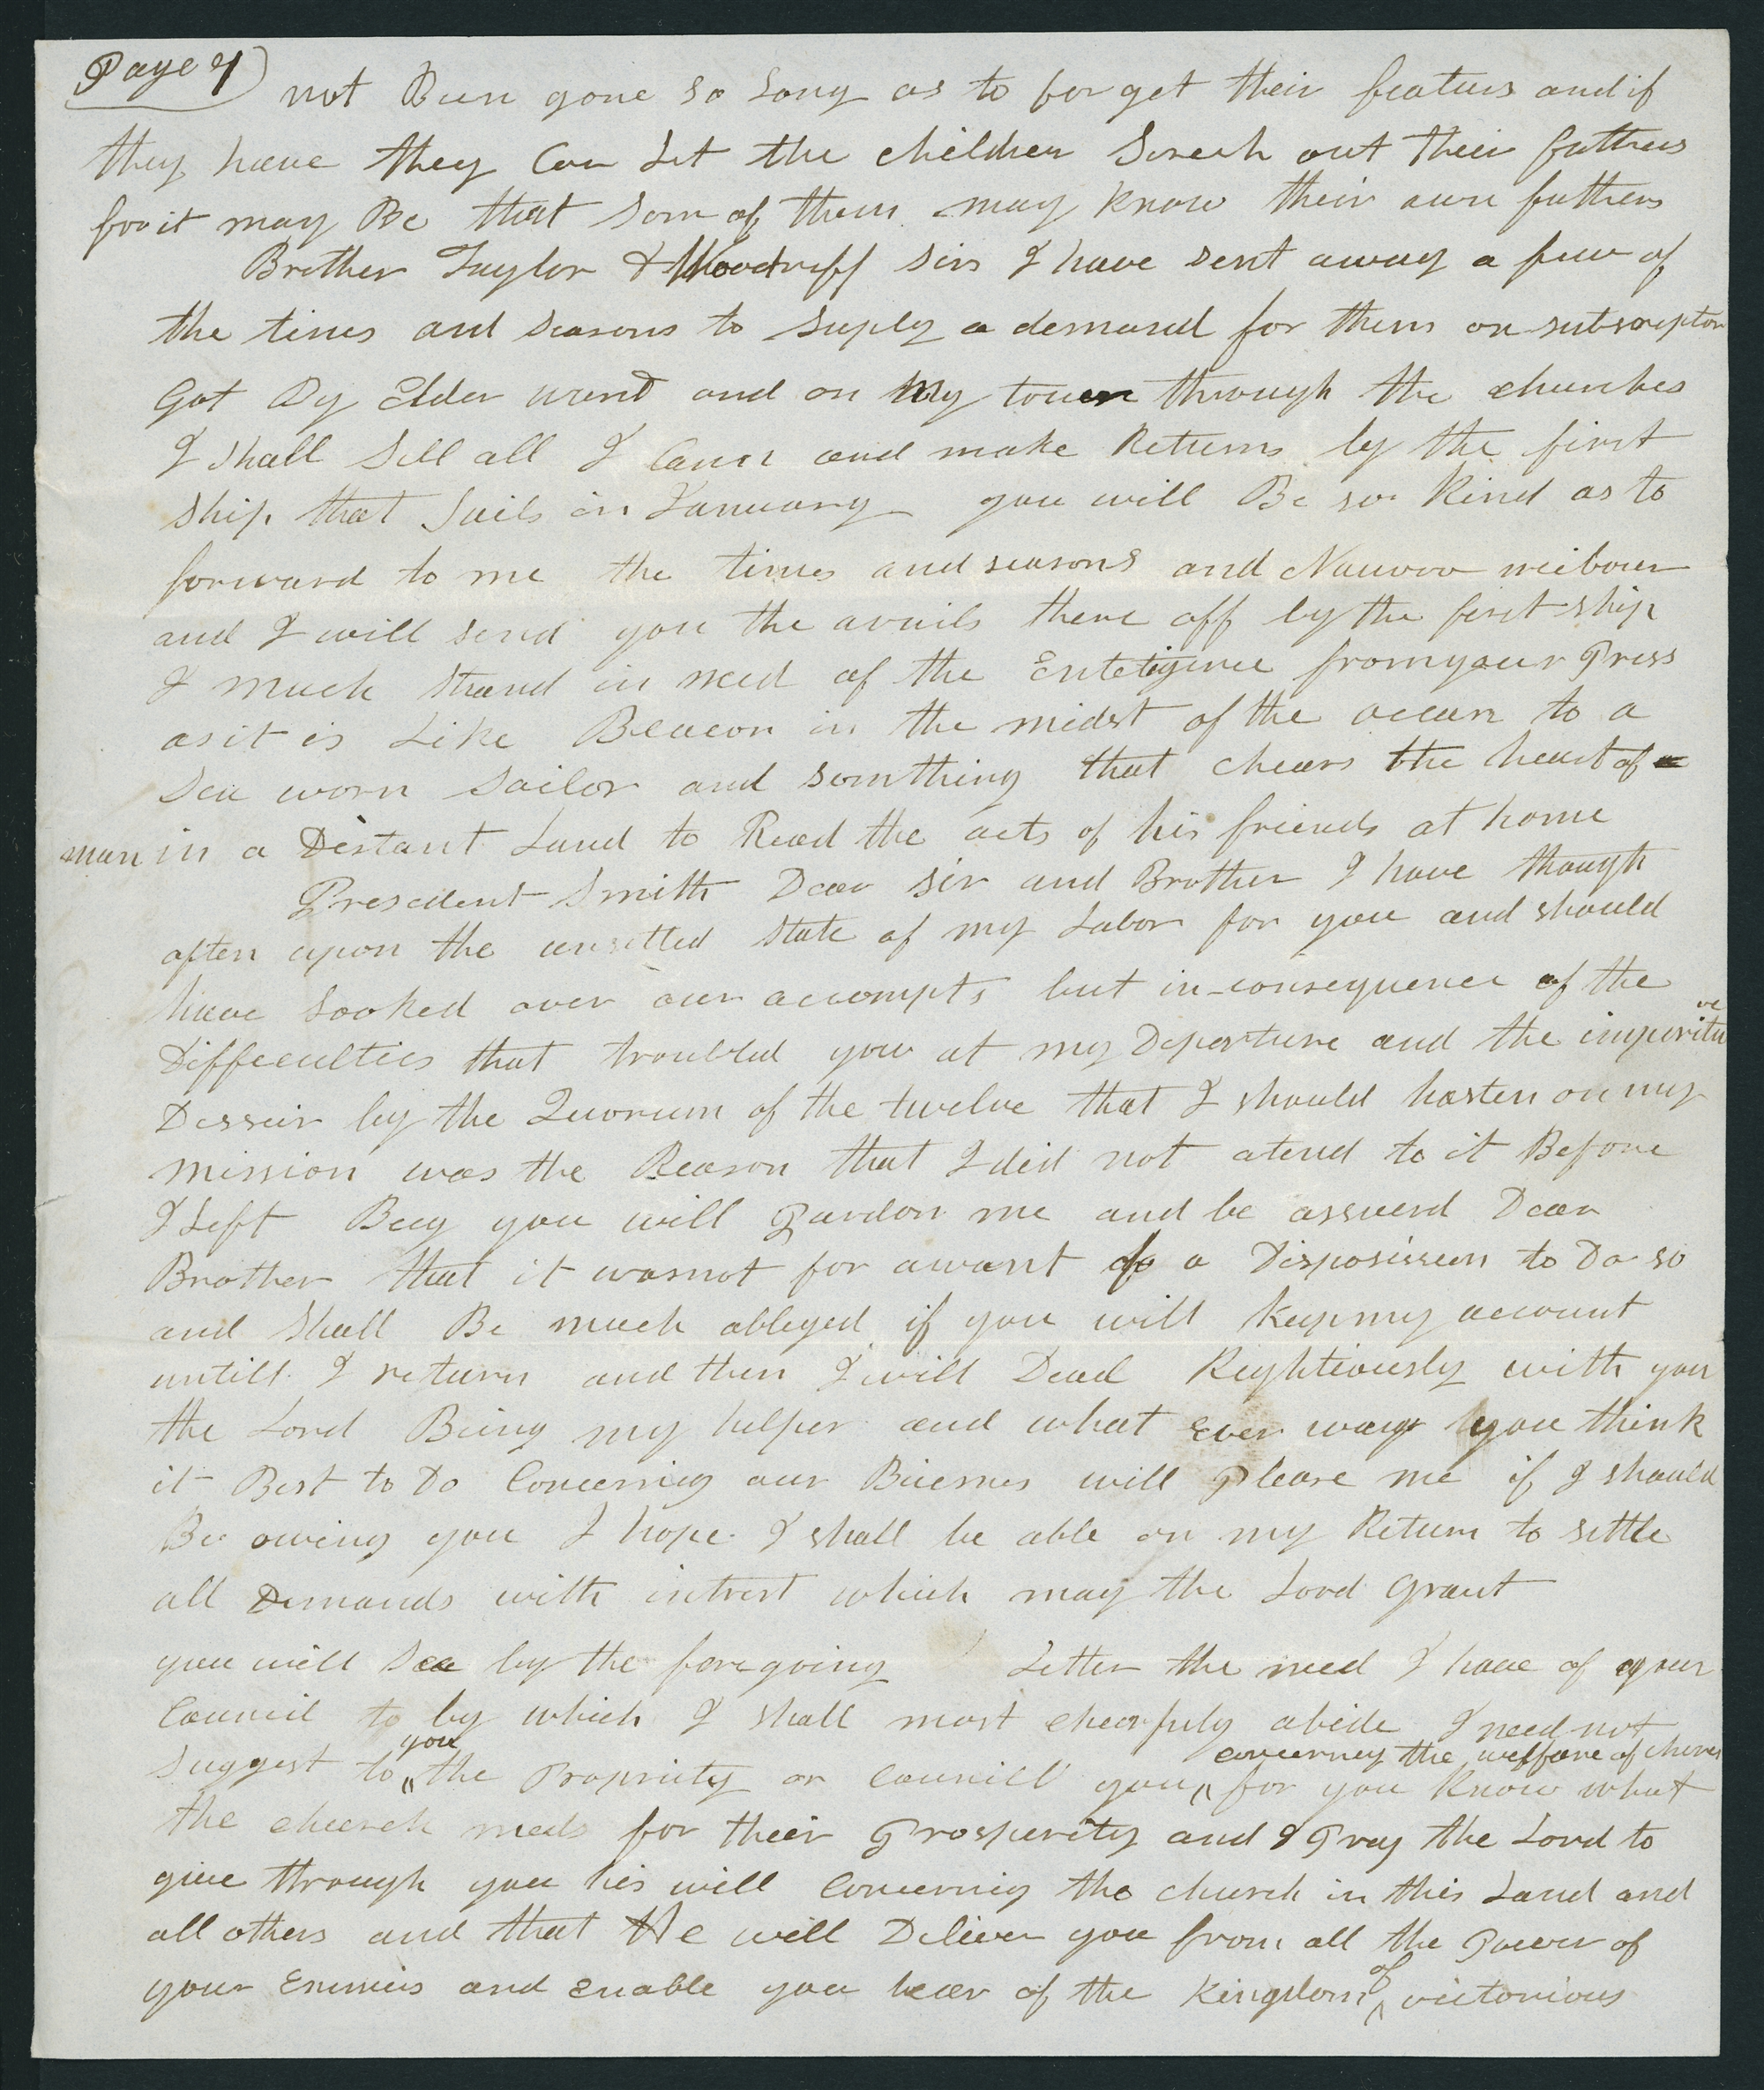 Page 7
not Been gone so Long as to forget their featurs and if
they have they Can Let the children Serch out their fathers
for it may Be that Som of them may know their own fathers
Brother Taylor & Woodruff sirs I have sent away a few of
the times and seasons to suply a demand for them on subscription
Got By Elder ward and on My touer through the churches
I shall Sell all I Cann and make Returns by the first
ship that Sails in January you will Be so Kind as to
forward to me the times and seasons and Nauvoo neibour
and I will send you the avails there off by the first ship
I much Stand in need of the Enteligence from your Press
as it is Like Beacon in the midst of the ocean to a
Sea worn Sailor and somthing that chears the heart of a
man in a Distant Land to Read the acts of his friends at home
Presedent Smith Dear sir and Brother I have though
often upon the unsetled state of my Labor for you and should
have Looked over our accompts but in consequence of the
Diffecculties that troubled you at my Deperture and the imperitive
Desseir by the Quorum of the twelve that I should hasten on my
mission was the Reason that I did not atend to it Before
I Left Beg you will Pardon me and be assuerd Dear
Brother that it was not for a want of a Disposisseen to Do so
and Shall Be much obleged if you will Keep my account
untill I return and then I will Deal Rightiously with you
the Lord Being my helper and what ever way you think
it Best to Do Concernig our Buisnes will Please me if I should
Be owing you I hope I shall be able on my Return to settle
all Demands with intrest which may the Lord Grant
you will See by the foregoing Letter the need I have of your
Council to by which I shall most chearfuly abide I need not
suggest to ^you the Propriety or Councill you ^concerneg the wellfare of
for you Know what
the cheerch needs for their Prosperity and I Pray the Lord to
give through you his will Concernig the church in this Land and
all others and that He will Deliver you from all the Power of
your Enimies and Enable you bear of the Kingdom ^of victorious